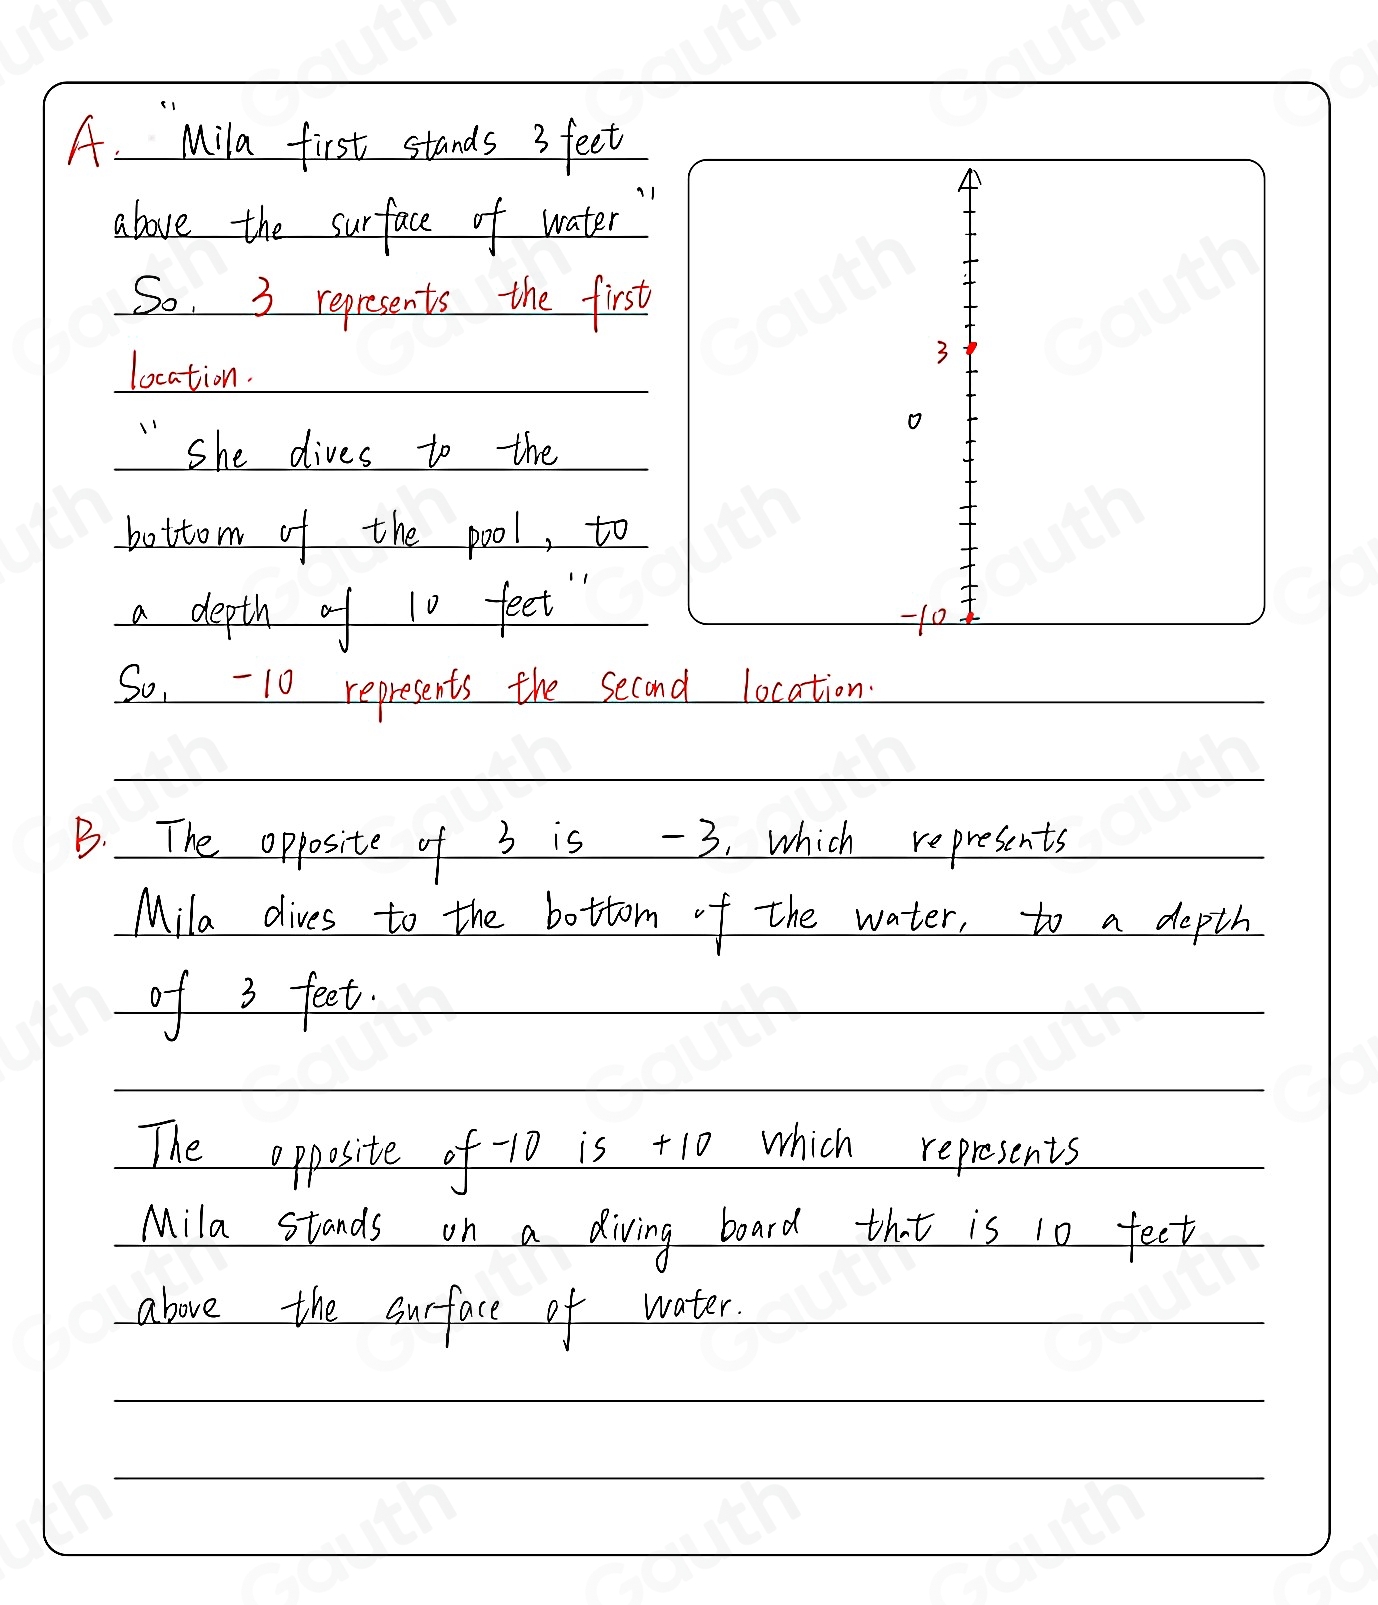 A. "Mila first stands 3 feet
above the surface of water"
So, 3 represents the first
location.
"She dives to the
bottom of the pool, to
a depth of 10 feet"
So, -10 represents the second location.
3
0
-10
B. The opposite of 3 is -3, which represents
Mila dives to the bottom of the water, to a depth
of 3 feet.
The opposite of -10 is +10 which represents
Mila stands on a diving board that is 10 feet
above the surface of water.
Gauth